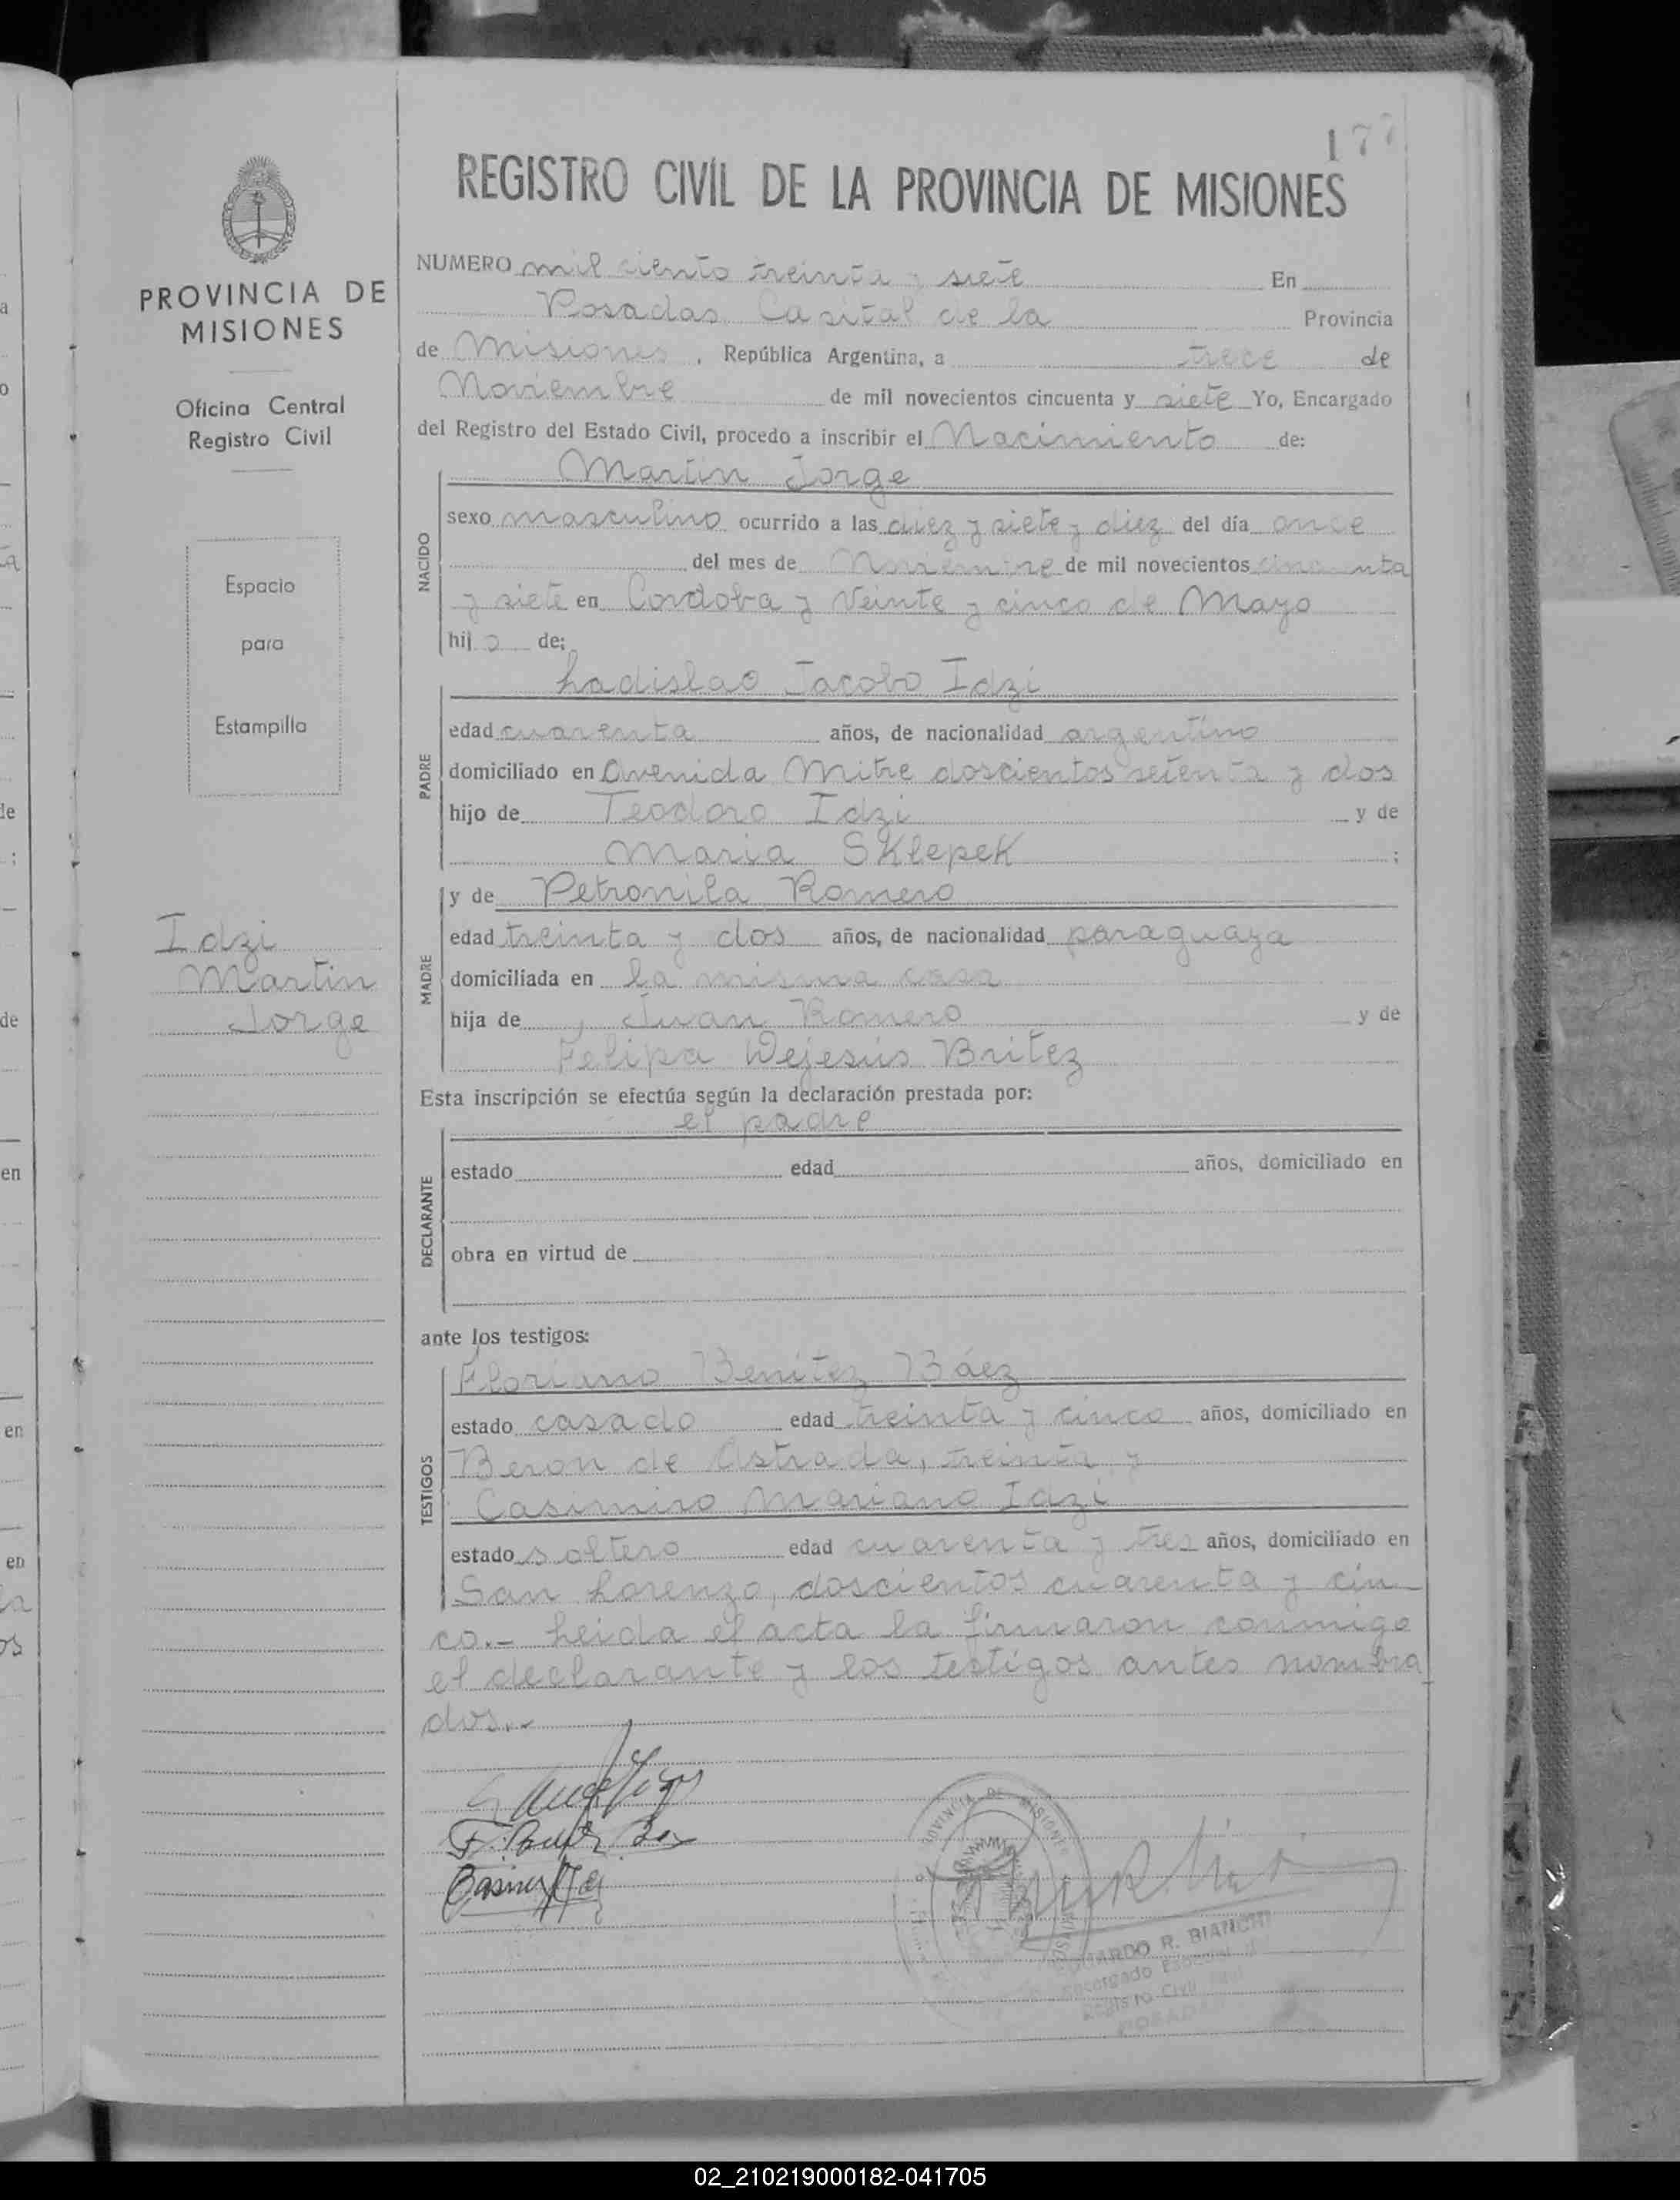 177
REGISTRO CIVIL DE LA PROVINCIA DE MISIONES
PROVINCIA DE
MISIONES
Oficina Central
Registro Civil
Espacio
para
Estampilla
Idzi
Martin
Jorge
NUMERO mil ciento treinta y siete En
Posadas Capital de la Provincia
de Misiones, República Argentina, a trece de
Noviembre de mil novecientos cincuenta y siete Yo, Encargado
del Registro del Estado Civil, procedo a inscribir el Nacimiento de:
Martin Jorge
NACIDO
sexo masculino ocurrido a las diez y siete y diez del día once
del mes de Noviembre de mil novecientos cincuenta
y siete en Cordoba y Veinte y cinco de Mayo
hijo de:
Ladislao Jacobo Idzi
PADRE
edad cuarenta años, de nacionalidad argentino
domiciliado en Avenida Mitre doscientos setenta y dos
hijo de Teodoro Idzi y de
Maria Sklepek ;
y de Petronila Romero
MADRE
edad treinta y dos años, de nacionalidad paraguaya
domiciliada en la misma casa
hija de Juan Romero y de
Felipa Dejesús Britez
Esta inscripción se efectúa según la declaración prestada por:
el padre
DECLARANTE
estado edad años, domiciliado en
obra en virtud de
ante los testigos:
Floriano Benítez Báez
TESTIGOS
estado casado edad treinta y cinco años, domiciliado en
Beron de Astrada, treinta y
Casimiro Mariano Idzi
estado soltero edad cuarenta y tres años, domiciliado en
San Lorenzo, doscientos cuarenta y cin
co.- Leida el acta la firmaron conmigo
el declarante y los testigos antes nombra
dos.-
PROVINCIA DE MISIONES
R. BIANCHI
Encargado
Registro Civil
POSADAS
02_210219000182-041705